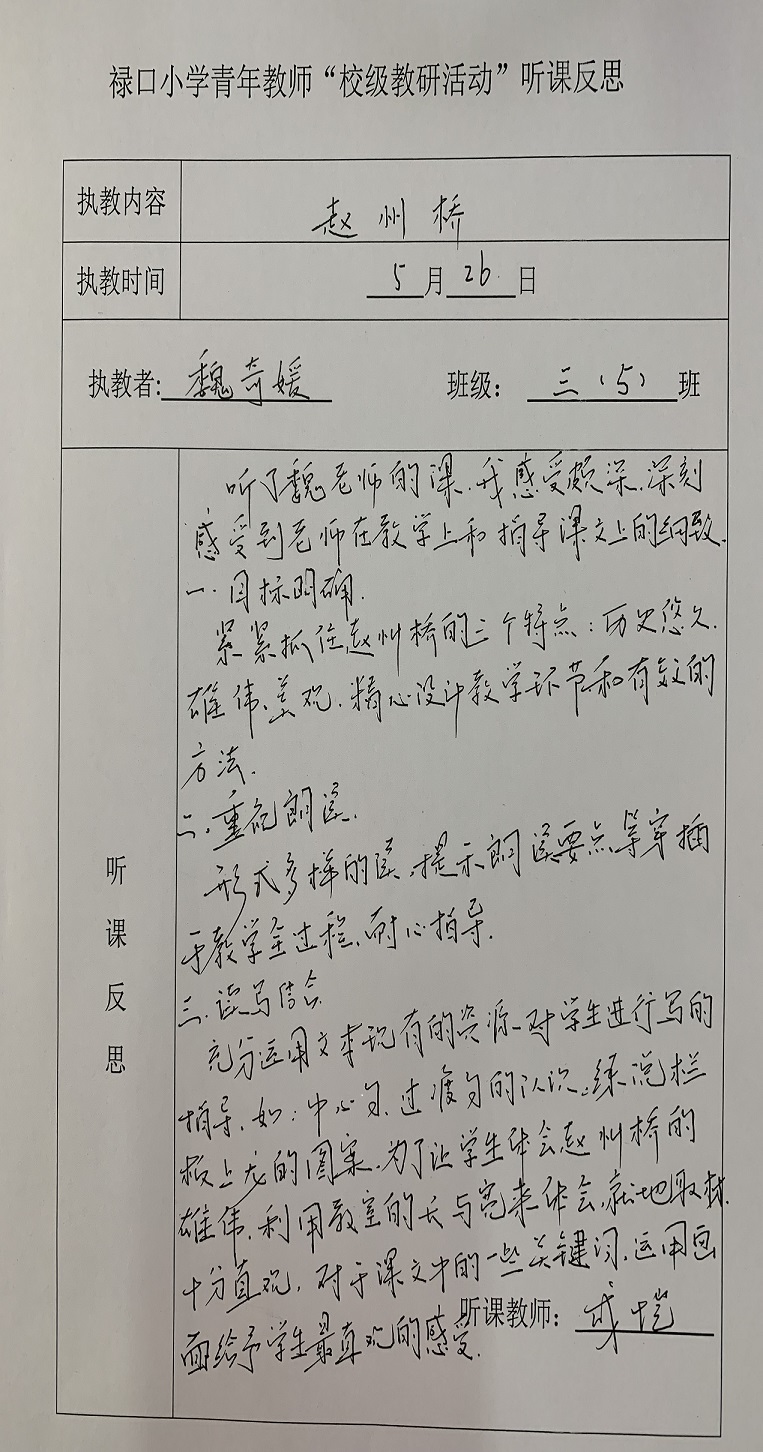 禄口小学青年教师“校级教研活动”听课反思
执教内容 赵州桥
执教时间 5月26日
执教者: 魏奇媛 班级: 三（5）班
听课反思
听了魏老师的课,我感受颇深,深刻
感受到老师在教学上和指导课文上的细致.
一.目标明确.
紧紧抓住赵州桥的三个特点:历史悠久.
雄伟、美观.精心设计教学环节和有效的
方法.
二.重视朗读.
形式多样的读,提示朗读要点等穿插
于教学全过程,耐心指导.
三.读写结合
充分运用文本现有的资源,对学生进行写的
指导,如:中心句,过渡句的认识,练说栏
板上龙的图案.为了让学生体会赵州桥的
雄伟,利用教室的长与宽来体会,就地取材.
十分直观,对于课文中的一些关键词,运用画
面给予学生最直观的感受.
听课教师: